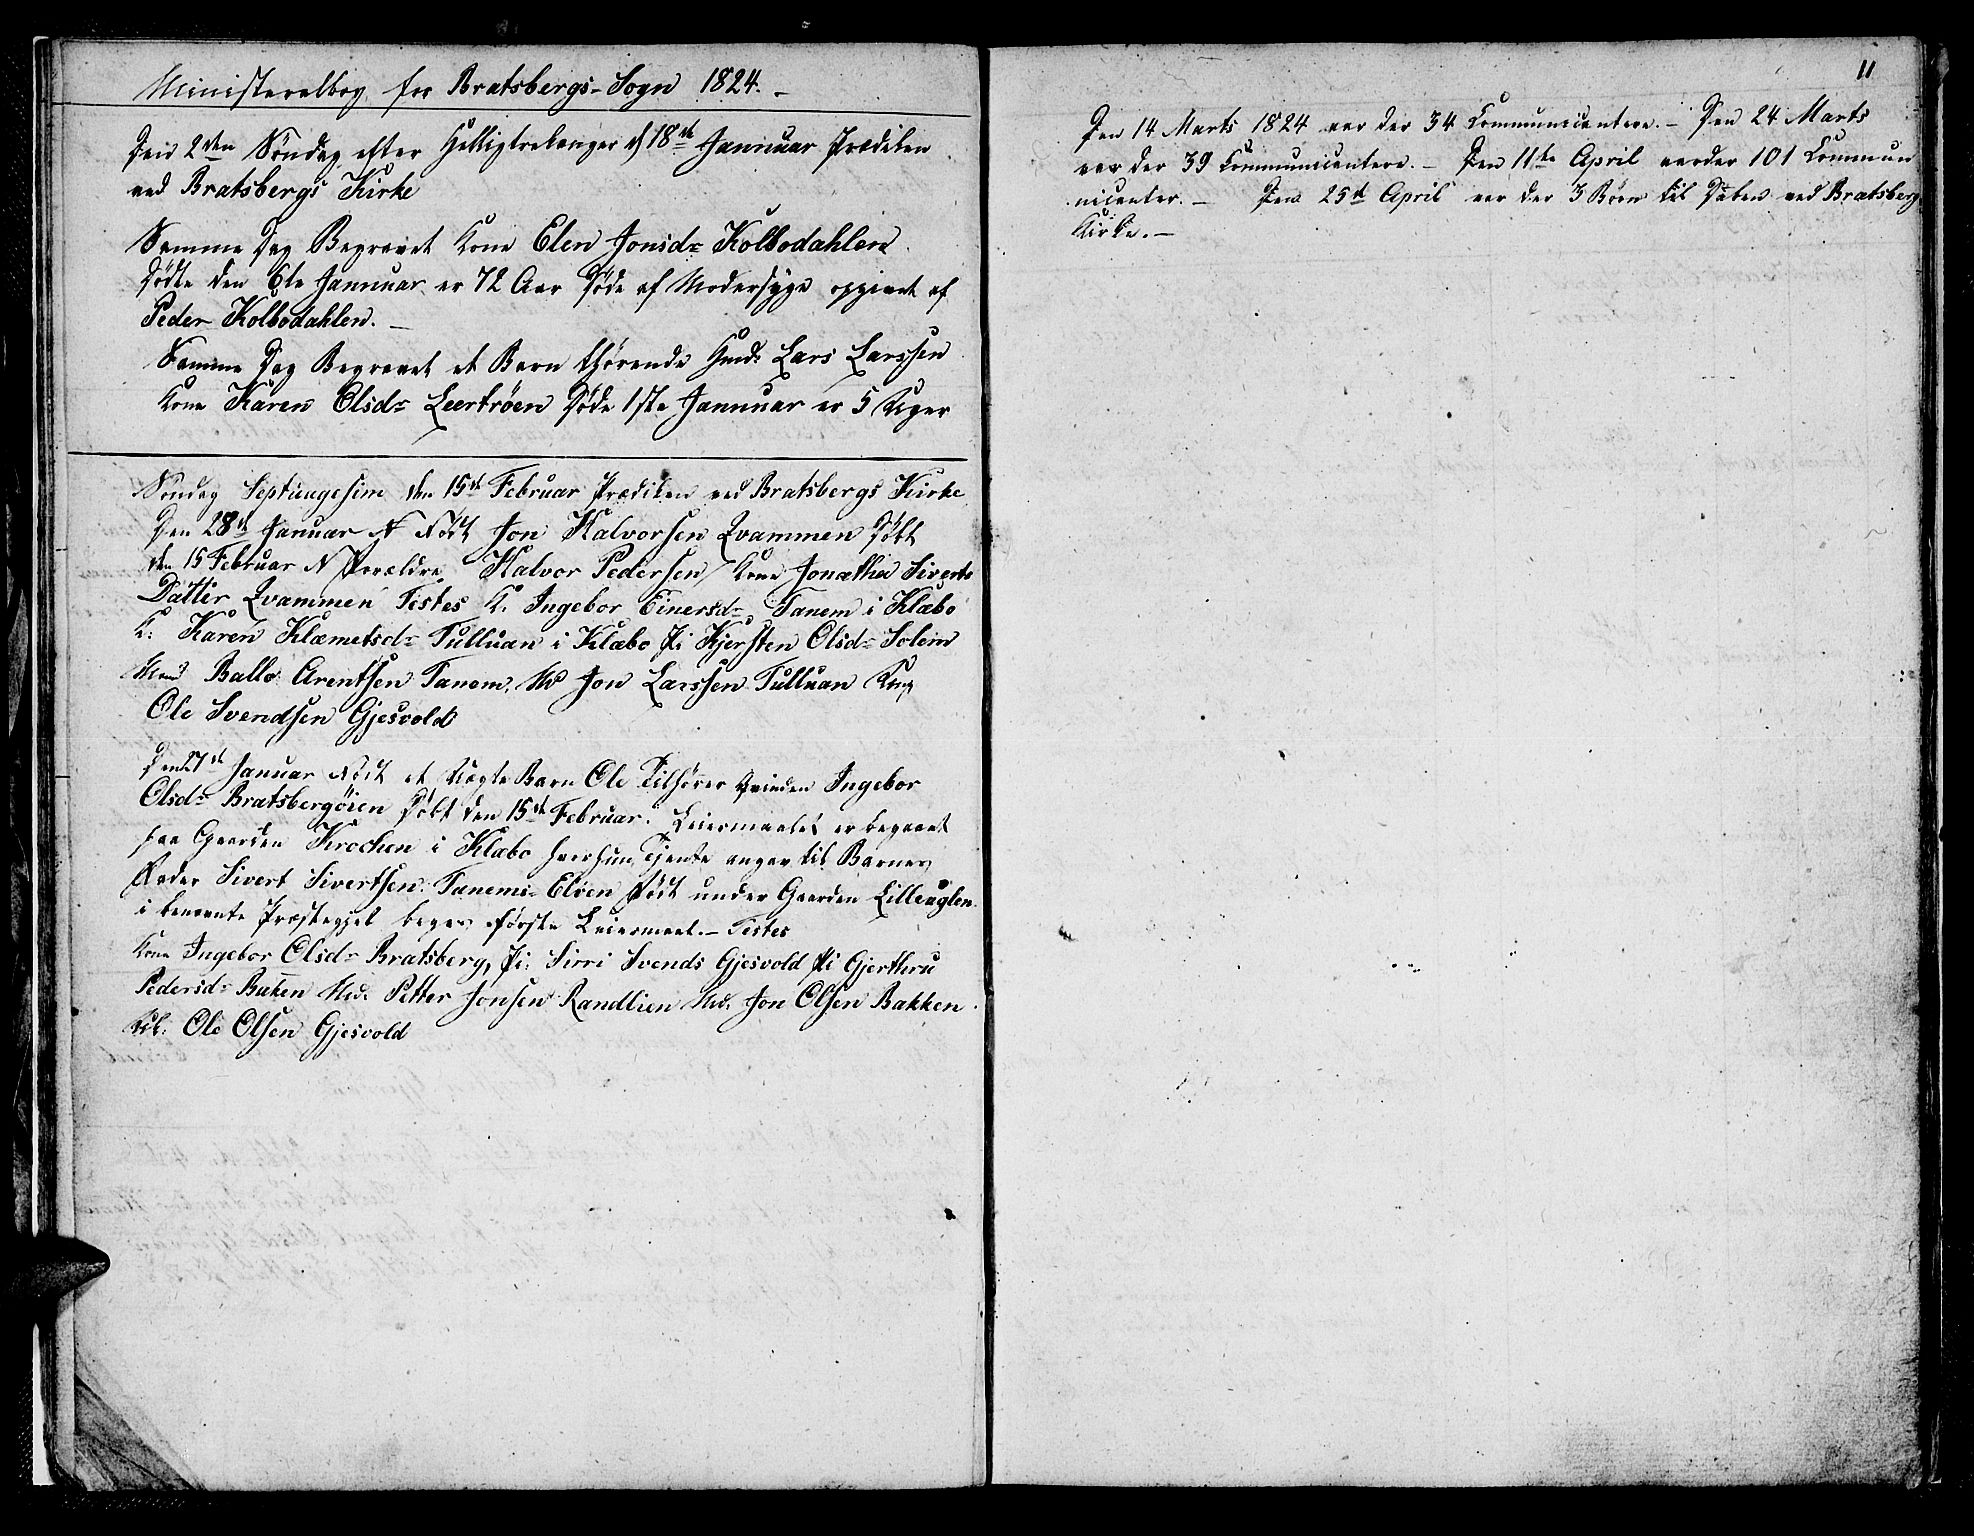 Ministeralbog for Bratsbergs-Sogn 1824.-
Den 2den Söndag efter Helligtrekonger d 18de Januuar Prædiken
ved Bratsbergs Kirke
Samme Dag Begravet Kone Elen Jonsdr Kolbodahlen
Dödte den 6te Januuar er 72 Aar Döde af Modersyge opgivet af
Peder Kolbodahlen. -
Samme Dag Begravet et Barn thörende Hmd: Lars Larssen
Kone Karen Olsdr Leertröen Döde 1ste Januuar er 5 Uger
Söndag Septuagesim den 15de Februar Prædiken ved Bratsbergs Kirke
Den 28de Januar Födt Jon Halvorsen Qvammen Döbt
den 15 Februar Forældre Halvor Pedersen Kone Jonetha Siverts
Datter Qvammen Testes K. Ingebor Einersdr Tanem i Klæbo
K: Karen Klæmetsdr Tulluan i Klæbo Pi Kjersten Olsdr Solem
Mand Ballo Arentsen Tanem, Md Jon Larssen Tulluan Ung
Ole Svendsen Gjesvold
Den 27de Januar Födt et Uægte Barn Ole Tilhörer Qvinden Ingebor
Olsdr Bratsbergöien Döbt den 15de Februar. Leiermaalet er begaaet
paa Gaarden Krocken i Klæbo hvor hun Tjente angav til Barnes
Fader Sivert Sivertsen Tanems-Elven Födt under Gaarden Lilleuglen
i benævnte Præstegjel beges förste Leiermaal.- Testes
Kone Ingebor Olsdr Bratsberg, Pi: Sirri Svends Gjesvold Pi Gjerthru
Pedersdr Baken Md. Petter Jonsen Randlien Md. Jon Olsen Bakken.
Ukl: Ole Olsen Gjesvold
11
Den 14 Marts 1824 var der 34 Communicantere.- Den 24 Marts
var der 39 Communicantere.- Den 11te April var der 101 Commun
nicanter.- Den 25de April var der 3 Börn til Daben ved Bratsberg
Kirke.-